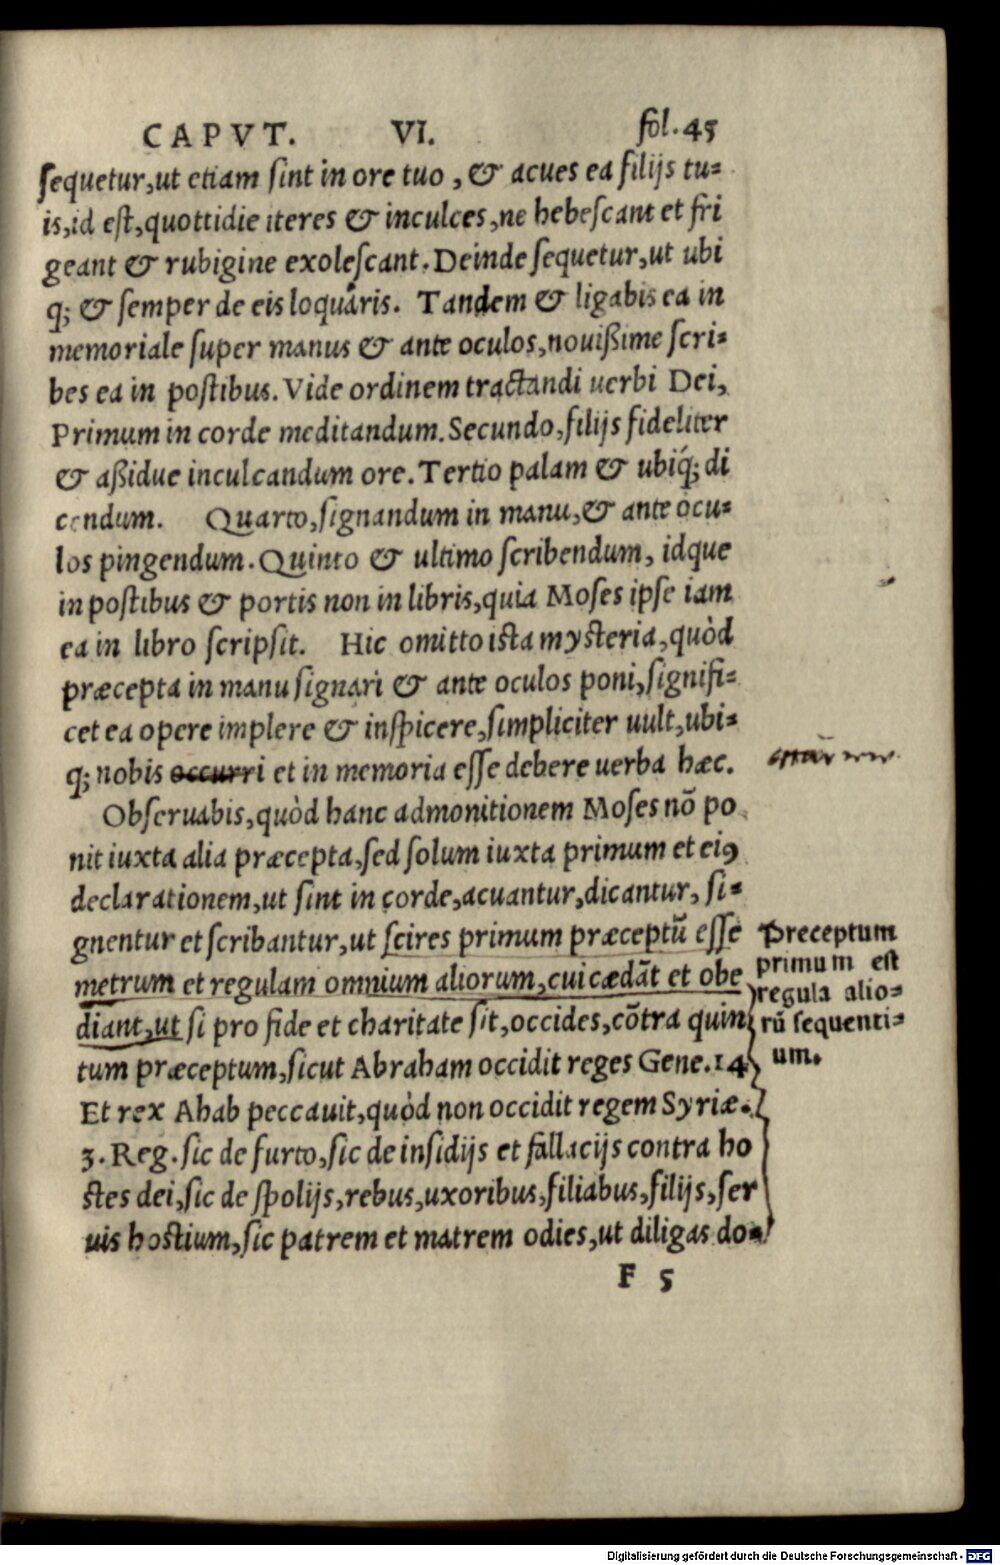 CAPVT. VI. fol. 45
sequetur,ut etiam sint in ore tuo , & acues ea filijs tu=
is,id est,quottidie iteres & inculces,ne hebescant et fri
geant & rubigine exolescant. Deinde sequetur,ut ubi
q; & semper de eis loquáris. Tandem & ligabis ea in
memoriale super manus & ante oculos,nouißime scri=
bes ea in postibus. Vide ordinem tractandi uerbi Dei,
Primum in corde meditandum. Secundo,filijs fideliter
& aßidue inculcandum ore. Tertio palam & ubiq́; di
cendum. Quarto,signandum in manu,& ante ocu=
los pingendum. Quinto & ultimo scribendum, idque
in postibus & portis non in libris,quia Moses ipse iam
ea in libro scripsit. Hic omitto ista mysteria,quòd
præcepta in manu signari & ante oculos poni,signifi=
cet ea opere implere & inspicere,simpliciter uult,ubi=
q; nobis occurri et in memoria esse debere uerba hæc.
Obseruabis,quòd hanc admonitionem Moses nõ po
nit iuxta alia præcepta,sed solum iuxta primum et eiꝰ
declarationem,ut sint in corde,acuantur,dicantur, si=
gnentur et scribantur,ut scires primum præceptũ esse
metrum et regulam omnium aliorum,cui cædãt et obe
diant,ut si pro fide et charitate sit,occides,cõtra quin
tum præceptum,sicut Abraham occidit reges Gene.14
Et rex Ahab peccauit,quòd non occidit regem Syriæ.
3. Reg. sic de furto,sic de insidijs et fallacijs contra ho
stes dei,sic de spolijs,rebus,uxoribus,filiabus,filijs,ser
uis hostium,sic patrem et matrem odies,ut diligas do=
Preceptum
primum est
regula alio=
rũ sequenti=
um.
F 5
Digitalisierung gefördert durch die Deutsche Forschungsgemeinschaft - DFG